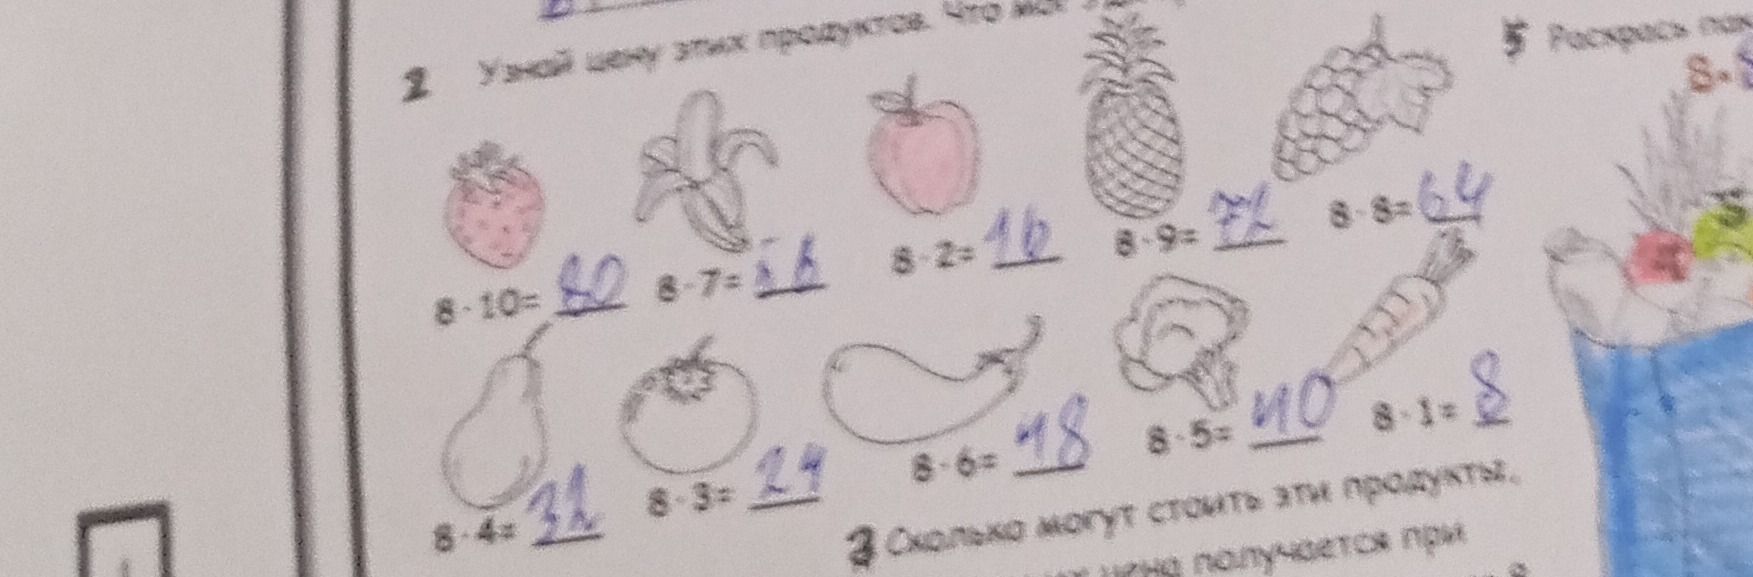 2 Узнай цену этих продуктов. Что мог
5 Раскрась пак
8·
8·10= 80
8·7= 56
8·2= 16
8·9= 72
8·8= 64
8·4= 32
8·3= 24
8·6= 48
8·5= 40
8·1= 8
3 Сколько могут стоить эти продукты,
цена получается при